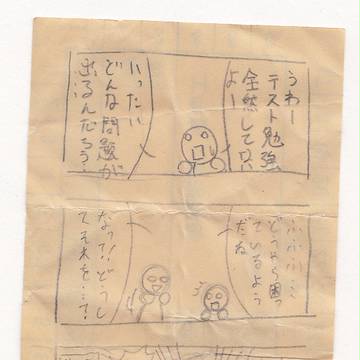 うわー
テスト勉強
全然してない
よー
いったい
どんな問題が
出るんだろう…
フフフフ…
どうやら困っ
ているよう
だね
なっ!!どうし
てそれを…!